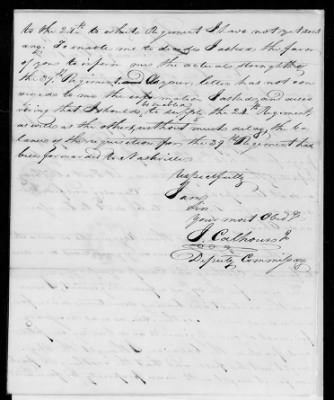 to the 28th to what Regiment I have not yet
any. To enable me to decide I asked the favor
of you to inform me the actual strength of
the 39th Regiment, and as your letter has not con
veyed to me the information I asked, and
being that I should be enabled to supply the 24th Regiment
as well as the others, without much delay, the ba
lance of the requisition for the 39th Regiment has
been forwarded to Nashville
Respectfully
I am
Sir
Your most Obedt
J. Calhoun Jr
Deputy Commissary